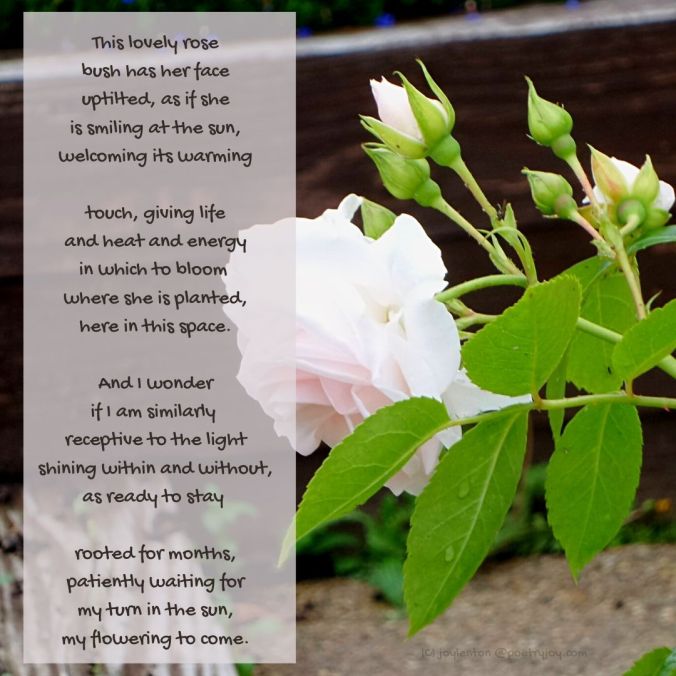 This lovely rose
bush has her face
uptilted, as if she
is smiling at the sun,
welcoming its warming
touch, giving life
and heat and energy
in which to bloom
where she is planted,
here in this space.
And I wonder
if I am similarly
receptive to the light
shining within and without,
as ready to stay
rooted for months,
patiently waiting for
my turn in the sun,
my flowering to come.
(C) joylenton @poetryjoy.com